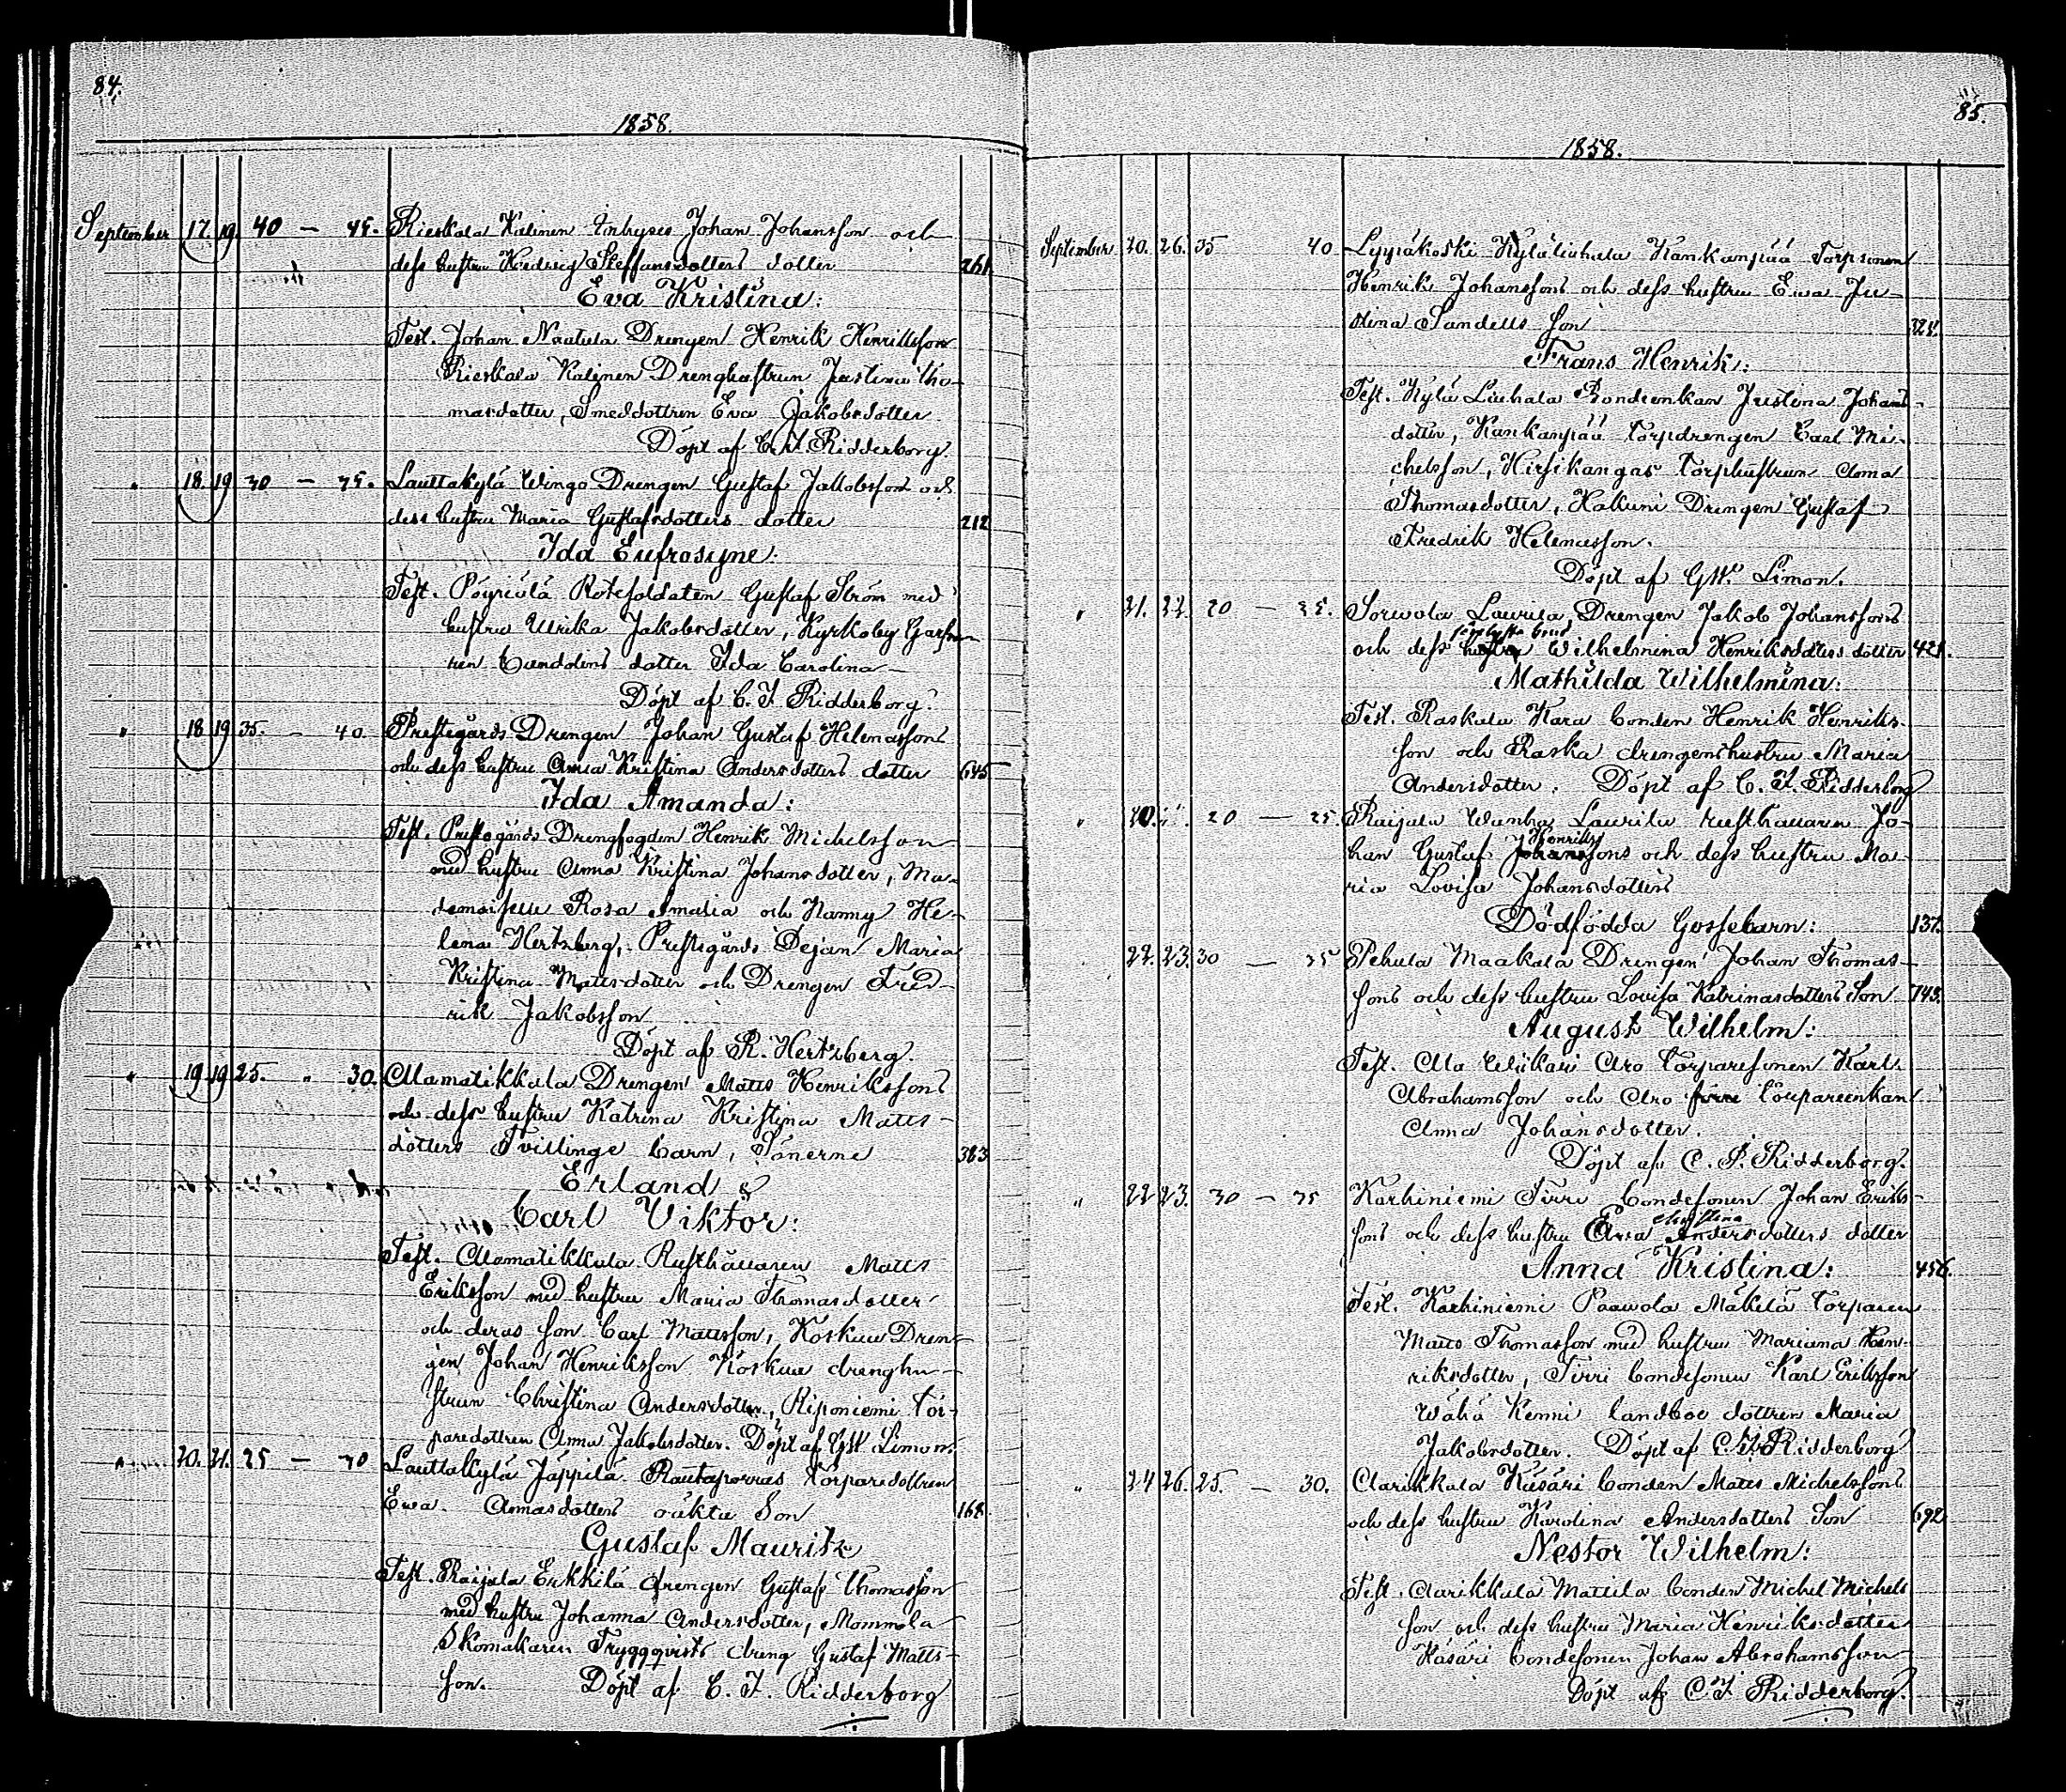 84.
1858.
September 17. 19. 40 — 45. Rieskala Kalinen Inhyses Johan Johansson och
dess hustru Hedvig Steffansdotters dotter 261
Eva Kristina:
Test. Johan Naatula Drengen Henrik Henriksson
Rieskala Kalinen Drenghustrun Justina Tho-
masdotter, Smeddottren Eva Jakobsdotter
Döpt af C. F. Ridderborg
" 18. 19 30 — 35. Lauttakylä Wingo Drengen Gustaf Jakobsson och
dess hustru Maria Gustafsdotters dotter 212
Ida Eufrosyne:
Test. Rotesoldaten Gustaf Ström med
hustru Ulrika Jakobsdotter, Kyrkoby
Lundolins dotter Ida Carolina
Döpt af C. F. Ridderborg.
" 18 19 35. — 40 Prestegårds Drengen Johan Gustaf Helenassons
och dess hustru Anna Kristina Andersdotters dotter 645
Ida Amanda:
Test. Prestegårds Drengfogden Henrik Michelsson
med hustru Anna Kristina Johansdotter, Ma-
demoiselle Rosa Amalia och Nanny He-
lena Hertzberg, Prestegårds Dejan Maria
Kristina Mattsdotter och Drengen Fred-
rik Jakobsson
Döpt af R. Hertzberg.
" 19 19 25. " 30. Mamatikkala Drengen Matts Henrikssons
och dess hustru Katrina Kristina Matts-
dotters Tvillinge barn, Sönerne 383
Erland &
Carl Viktor:
Test. Mamatikkala Rusthållaren Matts
Eriksson med hustru Maria Thomasdotter
och deras son Carl Mattsson, Koskue Dren-
gen Johan Henriksson Koskue drenghu-
strun Christina Andersdotter, Riponiemi Tor-
paredottren Anna Jakobsdotter. Döpt af GW. Limon.
" 20. 21. 25 — 30 Lauttakylä Jäppilä Rautaporras Torparedottren
Ewa Annasdotters oäkta Son 168
Gustaf Mauritz
Test. Raijala Erkkilä drengen Gustaf Thomasson
med hustru Johanna Andersdotter, Mommola
Skomakaren Tryggqvists dreng Gustaf Matts-
son. Döpt af C. F. Ridderborg
85.
1858.
September 20. 26. 35 40 Lyyräkoski Kyläliuhala Kankanpää Torpsonen
Henrik Johanssons och dess hustru Ewa Ju-
stina Sandells Son 324.
Frans Henrik:
Test. Kylä Liuhala Bondenkan Justina Johans-
dotter, Kankanpää Torpdrengen Carl Mi-
chelsson, Hirsikangas Torphustrun Anna
Thomasdotter, Hakuni Drengen Gustaf
Fredrik Helenasson.
Döpt af GW. Limon.
" 21. 22. 20 — 25. Sorwola Laurila Drengen Jakob Johanssons
och dess Wilhelmina Henriksdotters dotter 421.
Mathilda Wilhelmina:
Test. Raskala Kara bonden Henrik Henriks-
son och Raska drengens hustru Maria
Andersdotter. Döpt af C. F. Ridderborg
" 20. " 20 — 25. Raijala Wanha Laurila rusthållaren Jo-
han Gustaf Henrikssons och dess hustru Ma-
ria Lovisa Johansdotters
Dödfödda Gossebarn: 137.
22. 23. 30 — 35 Pehula Maakala Drengen Johan Thomas-
sons och dess hustru Lovisa Katrinasdotters Son 743.
August Wilhelm:
Test. Ala Wiikari Aro Torparesonen Karl
Abrahamsson och Aro Torpareenkan
Anna Johansdotter.
Döpt af C. F. Ridderborg.
" 22 23. 30 — 35 Karhiniemi Tirri bondesonen Johan Eriks-
sons och dess hustru Eva Christina Andersdotters dotter
Anna Kristina: 456.
Test. Karhiniemi Paawola Mäkilä Torparen
Matts Thomasson med hustru Mariana Hen-
riksdotter, Tirri bondesonen Karl Eriksson
Wähä Kenni landboe dottren Maria
Jakobsdotter. Döpt af C. F. Ridderborg
" 24 26. 25. — 30. Clarikkala Käsäri bonden Matts Michelssons
och dess hustru Karolina Andersdotters Son 692
Nestor Wilhelm:
Test. Clarikkala Mattila bonden Michel Michels
son och dess hustru Maria Henriksdotter
Käsäri bondesonen Johan Abrahamsson
Döpt af C. F. Ridderborg.